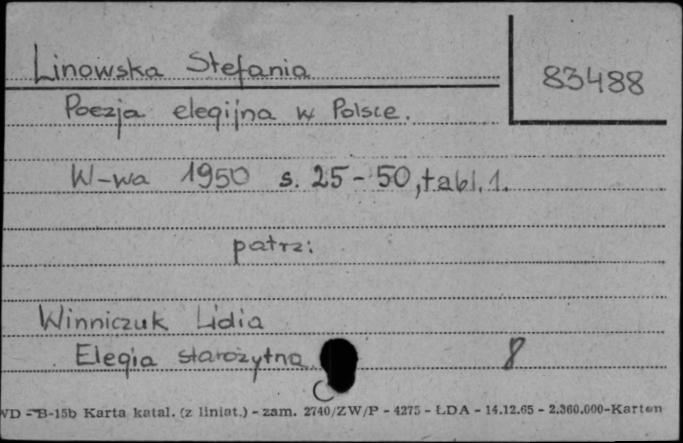 Linowska Stefania
83488
Poezja elegijna w Polsce.
W-wa 1950 s. 25-50, tabl. 1.
patrz:
Winniczuk Lidia
Elegia starożytna
8
WD - B-15b Karta katal. (z liniat.) - zam. 2740/ZW/P - 4275 - ŁDA - 14.12.65 - 2.360.000-Karton